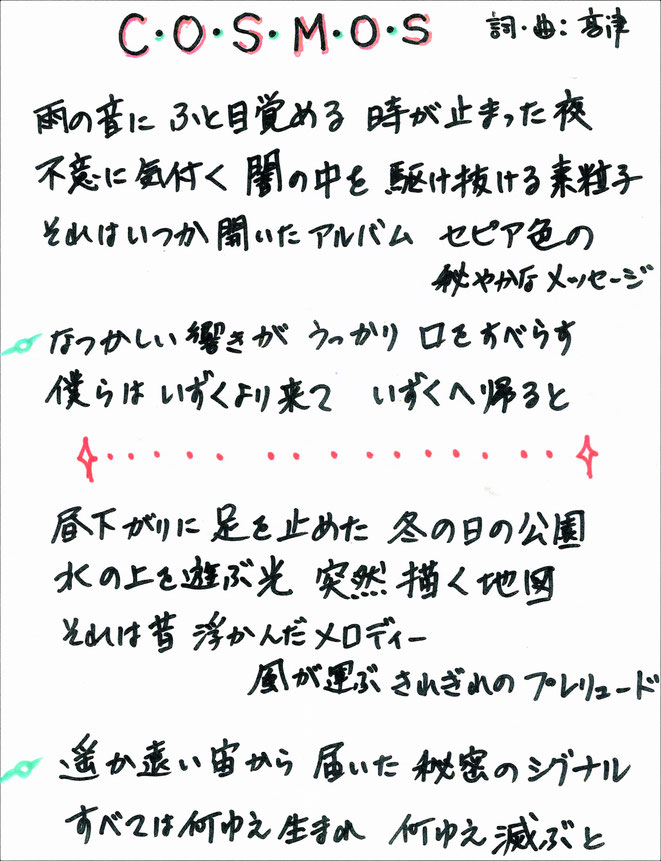 C・O・S・M・O・S
詞・曲：高津
雨の音に ふと目覚める 時が止まった夜
不意に気付く 闇の中を 駆け抜ける素粒子
それはいつか開いたアルバム セピア色の
秘やかなメッセージ
なつかしい響きが うっかり 口をすべらす
僕らは いずくより来て いずくへ帰ると
昼下がりに 足を止めた 冬の日の公園
水の上を遊ぶ光 突然 描く地図
それは昔 浮かんだメロディー
風が運ぶ きれぎれの プレリュード
遥か遠い宙から 届いた 秘密のシグナル
すべては何ゆえ生まれ 何ゆえ滅ぶと